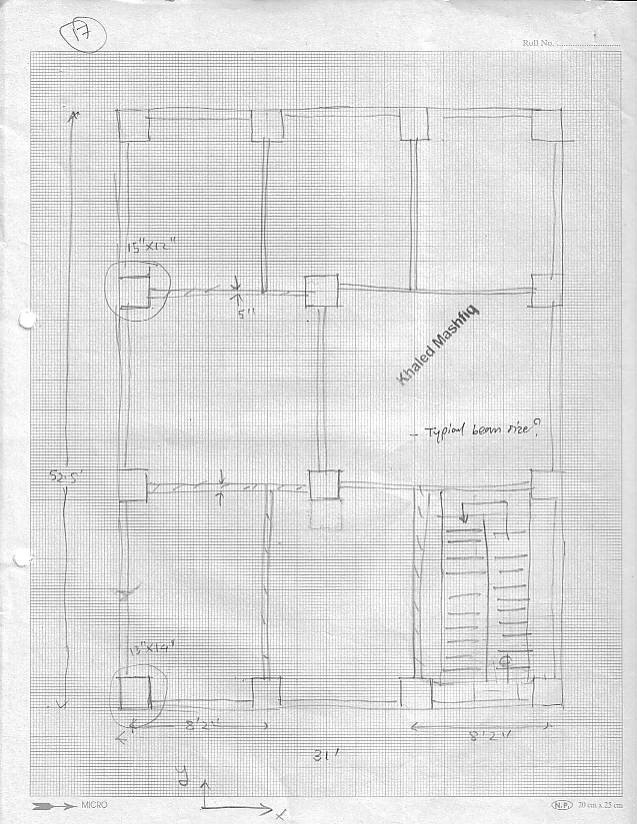 17
Roll No.
15"X12"
5"
Khaled Mashfiq
- Typical beam size?
52.5'
13"X14"
8'2"
8'2"
31'
y
x
MICRO
N.P. 20 cm x 25 cm